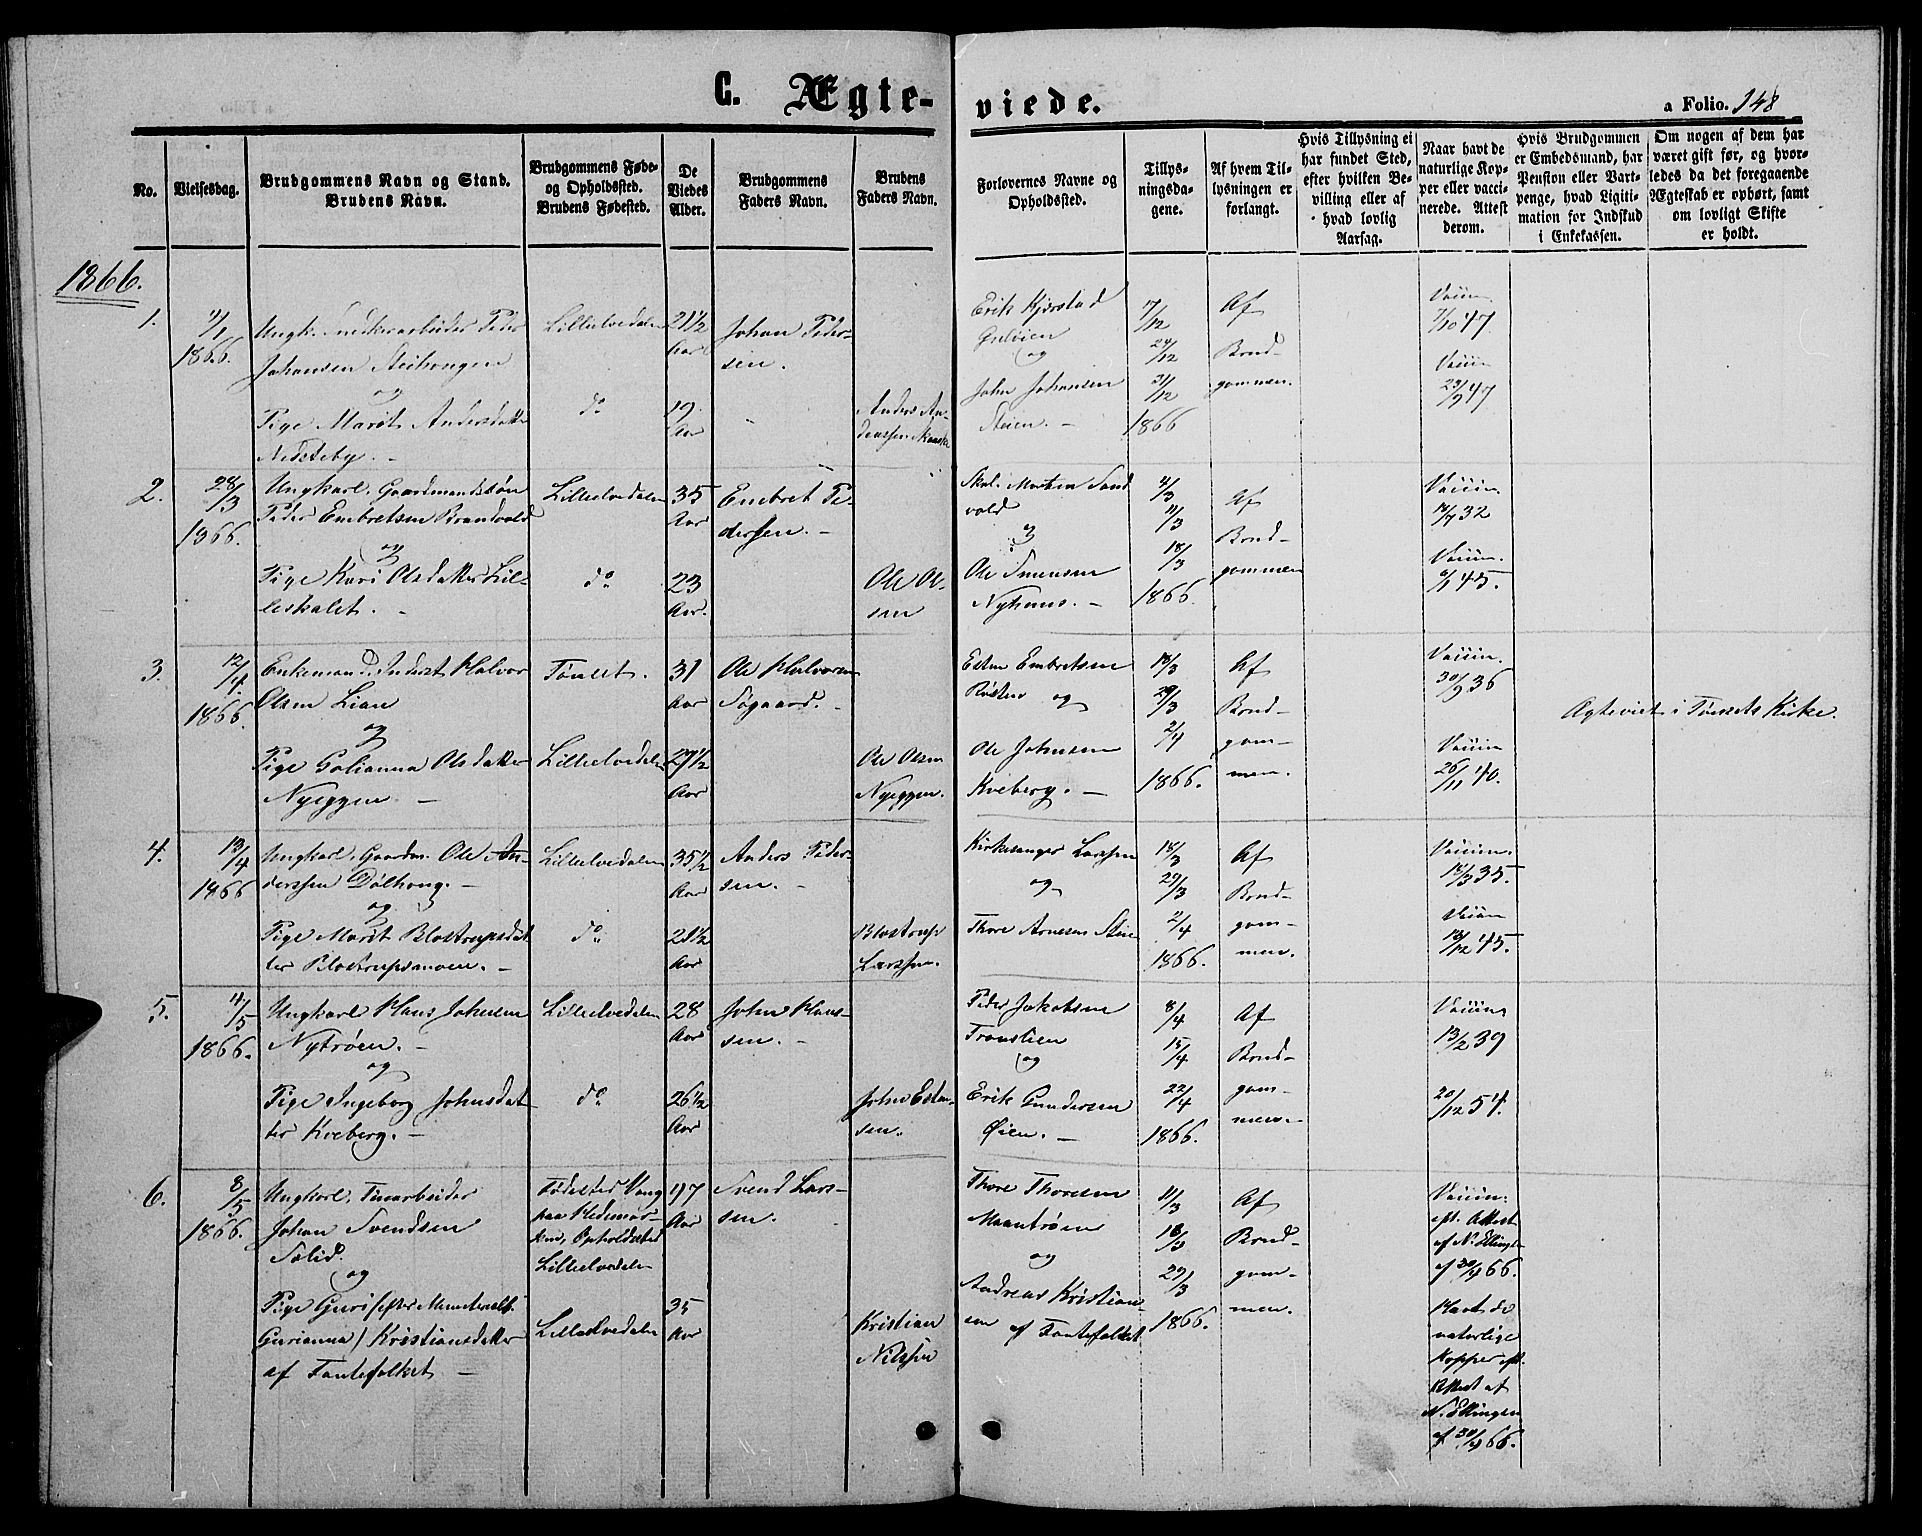 C. Ægte-
viede.
a Folio. 148
No.
Vielsesdag.
Brudgommens Navn og Stand.
Brudens Navn.
Brudgommens Føde-
og Opholdssted.
Brudens Fødested.
De
Viedes
Alder.
Brudgommens
Faders Navn.
Brudens
Faders Navn.
Forlovernes Navne og
Opholdssted.
Tillys-
ningsda-
gene.
Af hvem Til-
lysningen er
forlangt.
Hvis Tillysning ei
har fundet Sted,
efter hvilken Be-
villing eller af
hvad lovlig
Aarsag.
Naar havt de
naturlige Kop-
per eller vacci-
nerede. Attest
derom.
Hvis Brudgommen
er Embedsmand, har
Pension eller Vart-
penge, hvad Ligiti-
mation for Indskud
i Enkekassen.
Om nogen af dem har
været gift før, og hvor-
ledes da det foregaaende
Ægteskab er ophørt, samt
om lovligt Skifte
er holdt.
1866.
1.
1866.
Ungk. Snedkerarbeider Peder
Johansen
og
Pige Marit Andersdatter
Nedsteby. -
Lilleelvedalen
do
21 1/2
Aar
19
Aar
Johan Peder-
sen.
Anders An-
derssen
Erik Kjerstad
og
John Johansen
Steien. -
17/12
24/12
31/12
1866
Af
Brud-
gommen.
Vaccin.
7/10 47
Vaccin
29/9 47
2.
28/3
1866.
Ungkarl, Gaardmandssøn
Peder Embretsen Brandvold
og
Pige Kari Olsdatter Lil-
leskalet. -
Lilleelvedalen
do
35
Aar
23
Aar.
Embret Pe-
dersen. -
Ole Ol-
sen
Skol. Morten Sand
vold
og
Ole Simensen
Nyhuus. -
4/3
11/3
18/3
1866.
Af
Brud-
gommen
Vaccin.
32
Vaccin.
45.
3.
12/4
1866.
Enkemand, Halvor
Olsen Lian
og
Pige Golianna Olsdatter
Nyeggen. -
Tønset.
Lilleelvedalen
31
Aar
27 1/2
Aar
Ole Halvorsen
Søgaard. -
Ole Olsen
Nyeggen.
Esten Embretsen
Røsten og
Ole Johnsen
Kveberg. -
18/3
29/3
2/4
1866.
Af
Brud-
gom-
men.
Vaccin.
30/9 36
Vaccin
26/11 40.
Ægteviet i Tønsets Kirke.
4.
13/4
1866
Ungkarl, Gaardm. Ole An-
derssen Dølhaug. -
og
Pige Marit Blostrupsdat
ter Blostrupsmoen. -
Lilleelvedalen
do
35 1/2
Aar
21 1/2
Aar
Anders Peder-
sen. -
Blostrup
Larssen.
Kirkesanger Larssen
og
Thore Arnesen Steie
18/3
29/3
2/4
1866.
Af
Brud-
gom-
men.
Vaccin.
35.
Vaccin
45.
5.
11/5
1866.
Ungkarl Hans Johnsen
Nytrøen. -
og
Pige Ingeborg Johnsdat
ter Kveberg. -
Lilleelvedalen
do
28
Aar
26 1/2
Aar
John Hans-
sen. -
John Esten-
sen.
Peder Jakobsen
Tronslien
og
Erik Gundersen
Øien. -
8/4
15/4
22/4
1866.
Af
Brud-
gom-
men.
Vaccin.
13/2 39
20/12 54.
6.
8/5
1866.
Ungkarl,
Johan Svendsen
Solid.
og
Pige Guri (efter Ministerialb.
Gurianna) Kristiansdatter
af Fantefolket -
Fødested Vang
paa Hedemar-
ken, Opholdssted
Lilleelvedalen
Lilleelvedalen
47
Aar
35
Aar
Svend Lars-
sen.
Kristian
Nilssen
Thore Thoresen
Moantrøen
og
Andreas Kristian-
sen af Fantefolket
11/3
18/3
29/3
1866.
Af
Brud-
gom-
men.
Vaccin.
eft. Attest
af N. Ellingsen
af 30/4 66.
Havt de
naturlige
Kopper eft.
Attest af
N. Ellingsen
af 30/4 66.